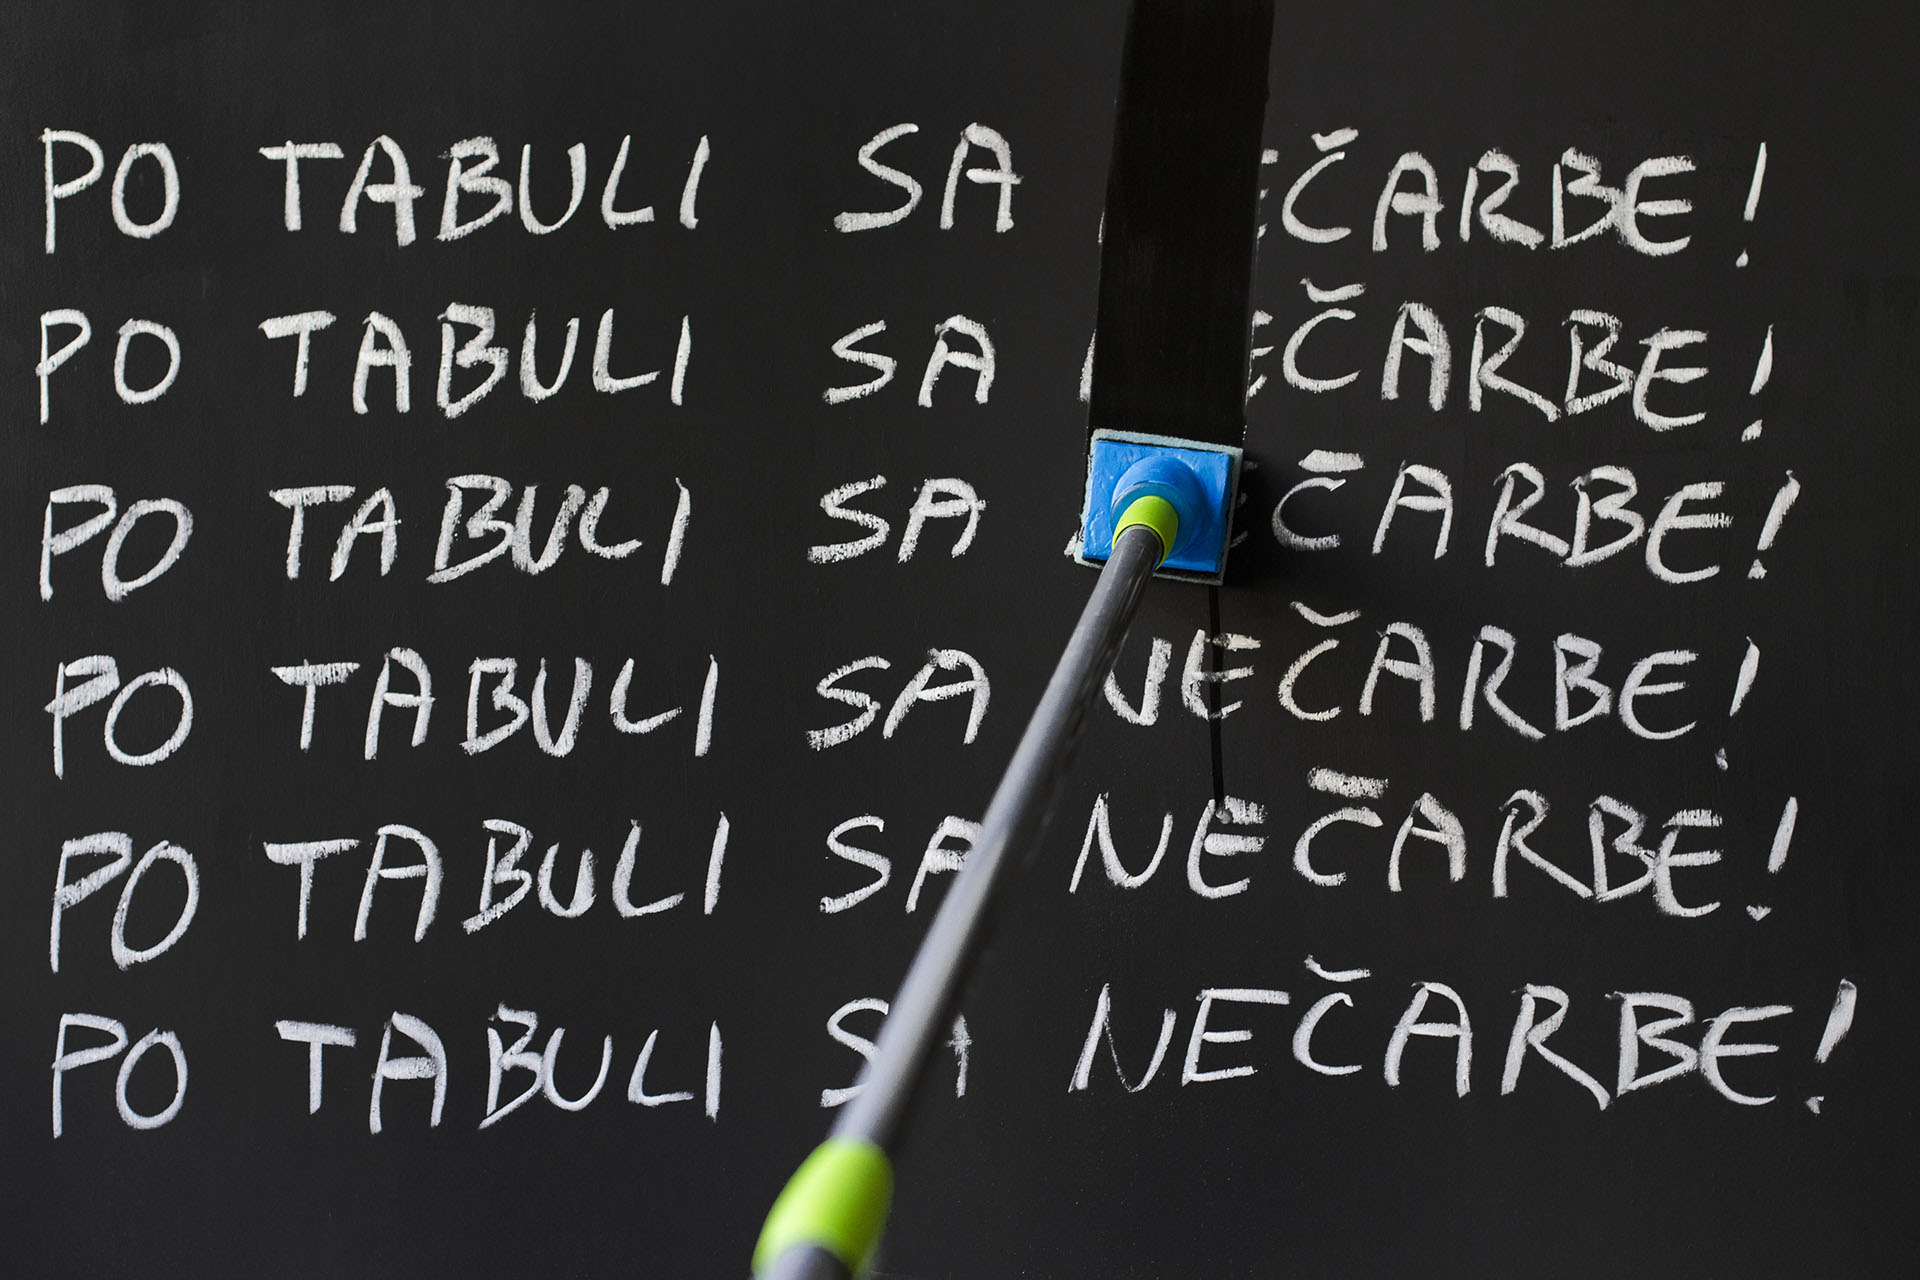 PO TABULI SA NEČARBE!
PO TABULI SA NEČARBE!
PO TABULI SA NEČARBE!
PO TABULI SA NEČARBE!
PO TABULI SA NEČARBE!
PO TABULI SA NEČARBE!